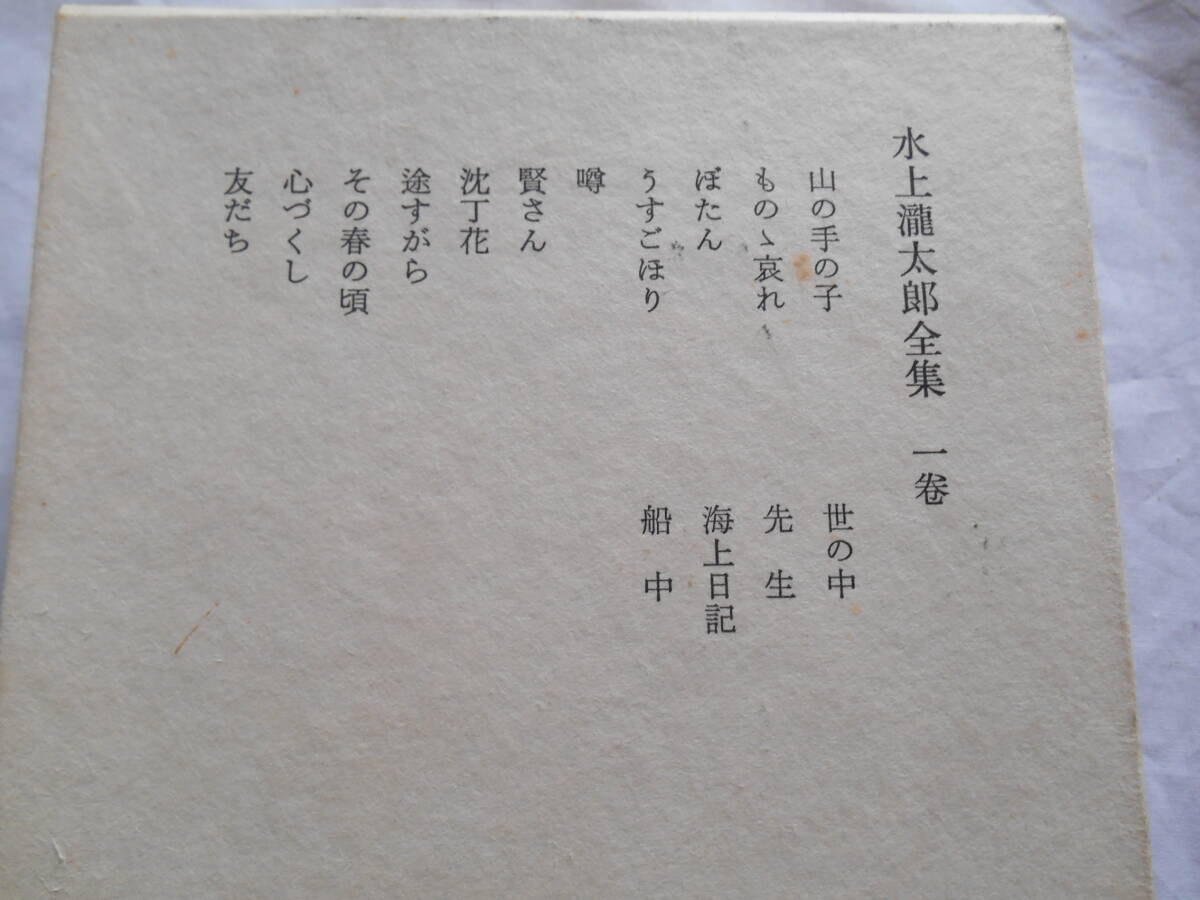 水上瀧太郎全集　一巻
山の手の子
ものゝ哀れ
ぼたん
うすごほり
噂
賢さん
沈丁花
途すがら
その春の頃
心づくし
友だち
世の中
先生
海上日記
船中